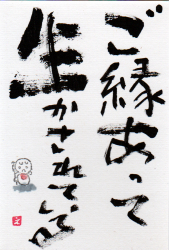 ご縁あって
生かされている